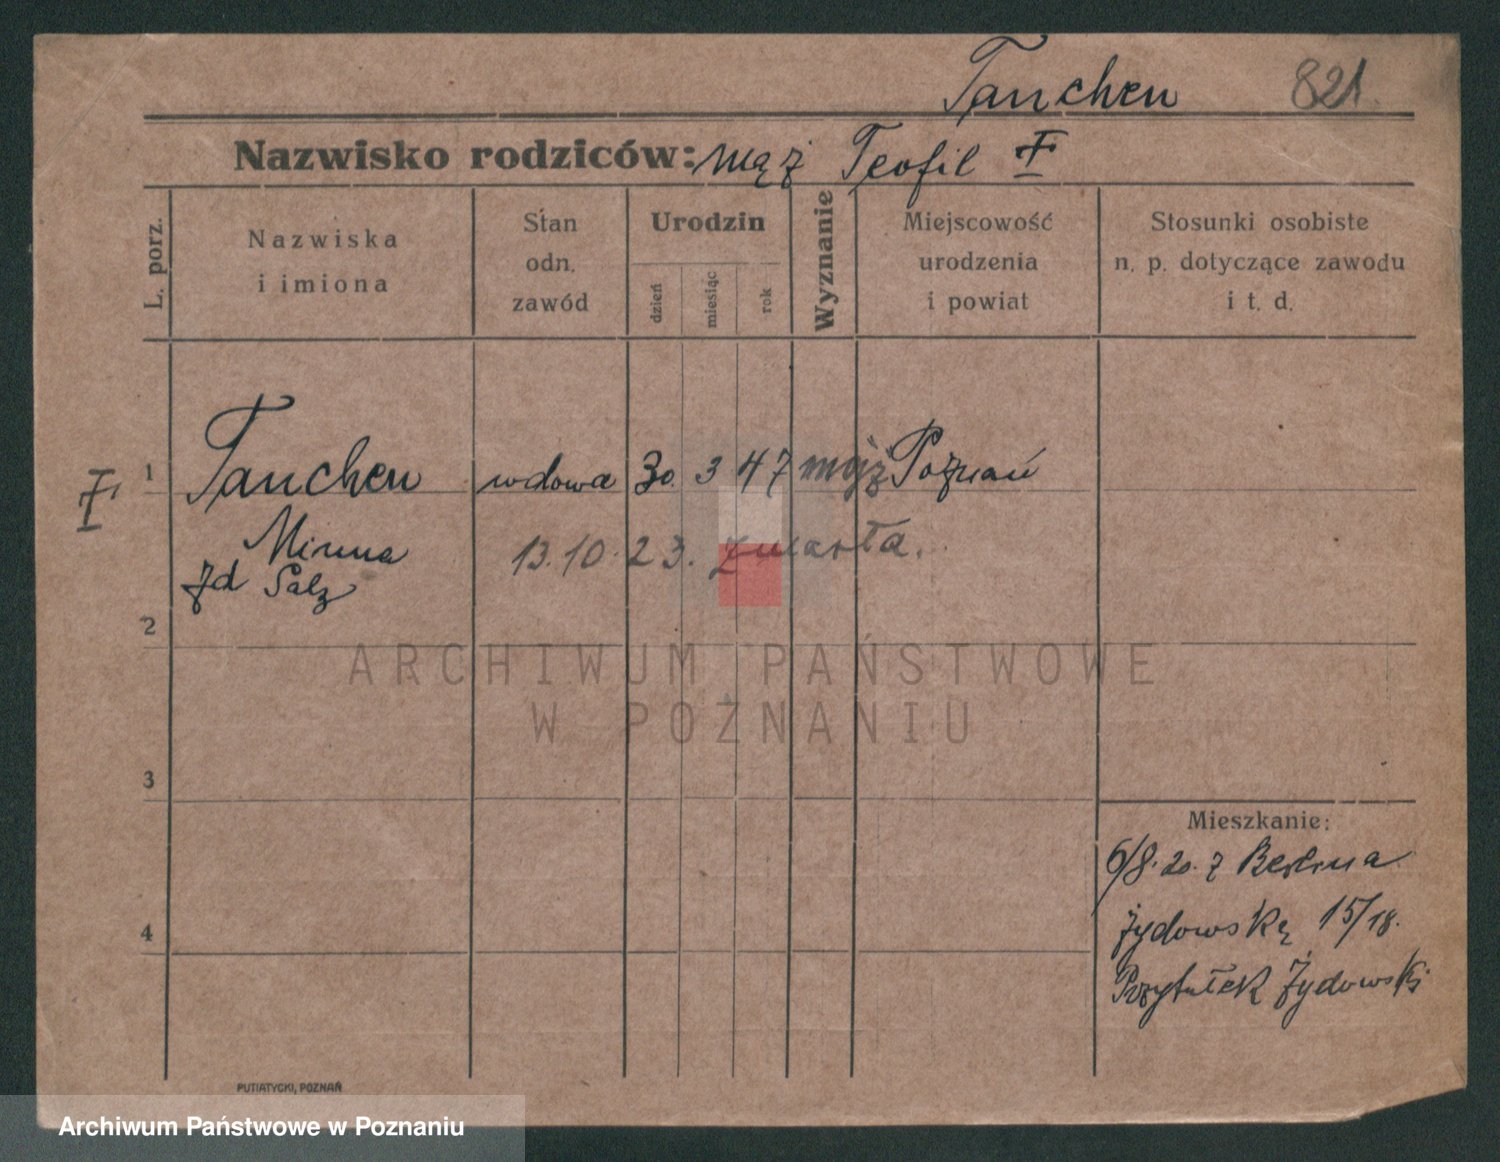 Tanchen 821.
Nazwisko rodziców: mąż Teofil
L. porz.
Nazwiska
i imiona
Stan
odn.
zawód
Urodzin
dzień
miesiąc
rok
Wyznanie
Miejscowość
urodzenia
i powiat
Stosunki osobiste
n. p. dotyczące zawodu
i t. d.
1 Tanchen wdowa 30. 3 47 mojż Poznań
Minna 13.10.23. zmarła.
zd Salz
2
ARCHIWUM PAŃSTWOWE
W POZNANIU
3
Mieszkanie:
6/8. 20. z Berlina
4 Żydowską 15/18.
Przytułek Żydowski
PUTIATYCKI, POZNAŃ
Archiwum Państwowe w Poznaniu